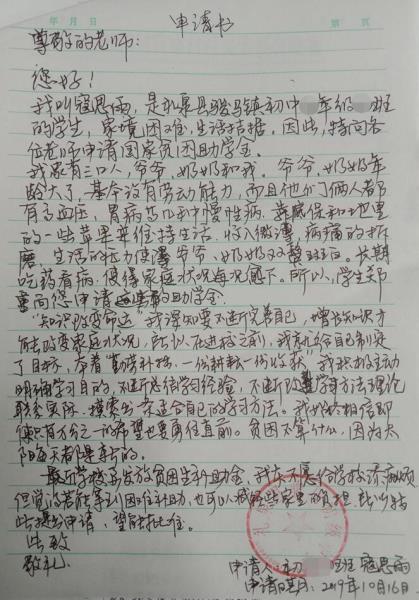 年 月 日
第 页
申请书
尊敬的老师:
您好!
我叫寇思雨,是礼泉县骏马镇初中 年级 班
的学生,家境困难,生活拮据,因此,特向各
位老师申请国家贫困助学金。
我家有三口人,爷爷,奶奶和我。爷爷,奶奶年
龄大了,基本没有劳动能力,而且他们俩人都
有高血压,胃病 慢性病,靠低保和地里
的一些苹果来维持生活,收入微薄,病痛的折
磨,生活的压力使得爷爷,奶奶双鬓斑白。长期
吃药看病,使得家庭状况每况愈下。所以,学生郑
重向您申请 助学金
"知识改变命运"我深知要不断完善自己,增长知识才
能改变家庭状况,所以,在进校之前,我就给自己制定
了目标,本着"勤劳补拙,一份耕耘一份收获"我积极主动
明确学习目的,不断总结学习经验,不断改进学习方法理论
联系实际,摸索出一条适合自己的学习方法。我始终相信即
使只有万分之一的希望也要勇往直前。贫困不算什么,因为太
阳每天都是新的。
最近学校要发放贫困生补助金,我本不愿给学校添麻烦
但觉的若能等到困难补助,也可以减轻些家里的负担,所以特
此提出申请,望能批准。
此致
敬礼
申请人:初 班 寇思雨
申请日期:2019年10月16日